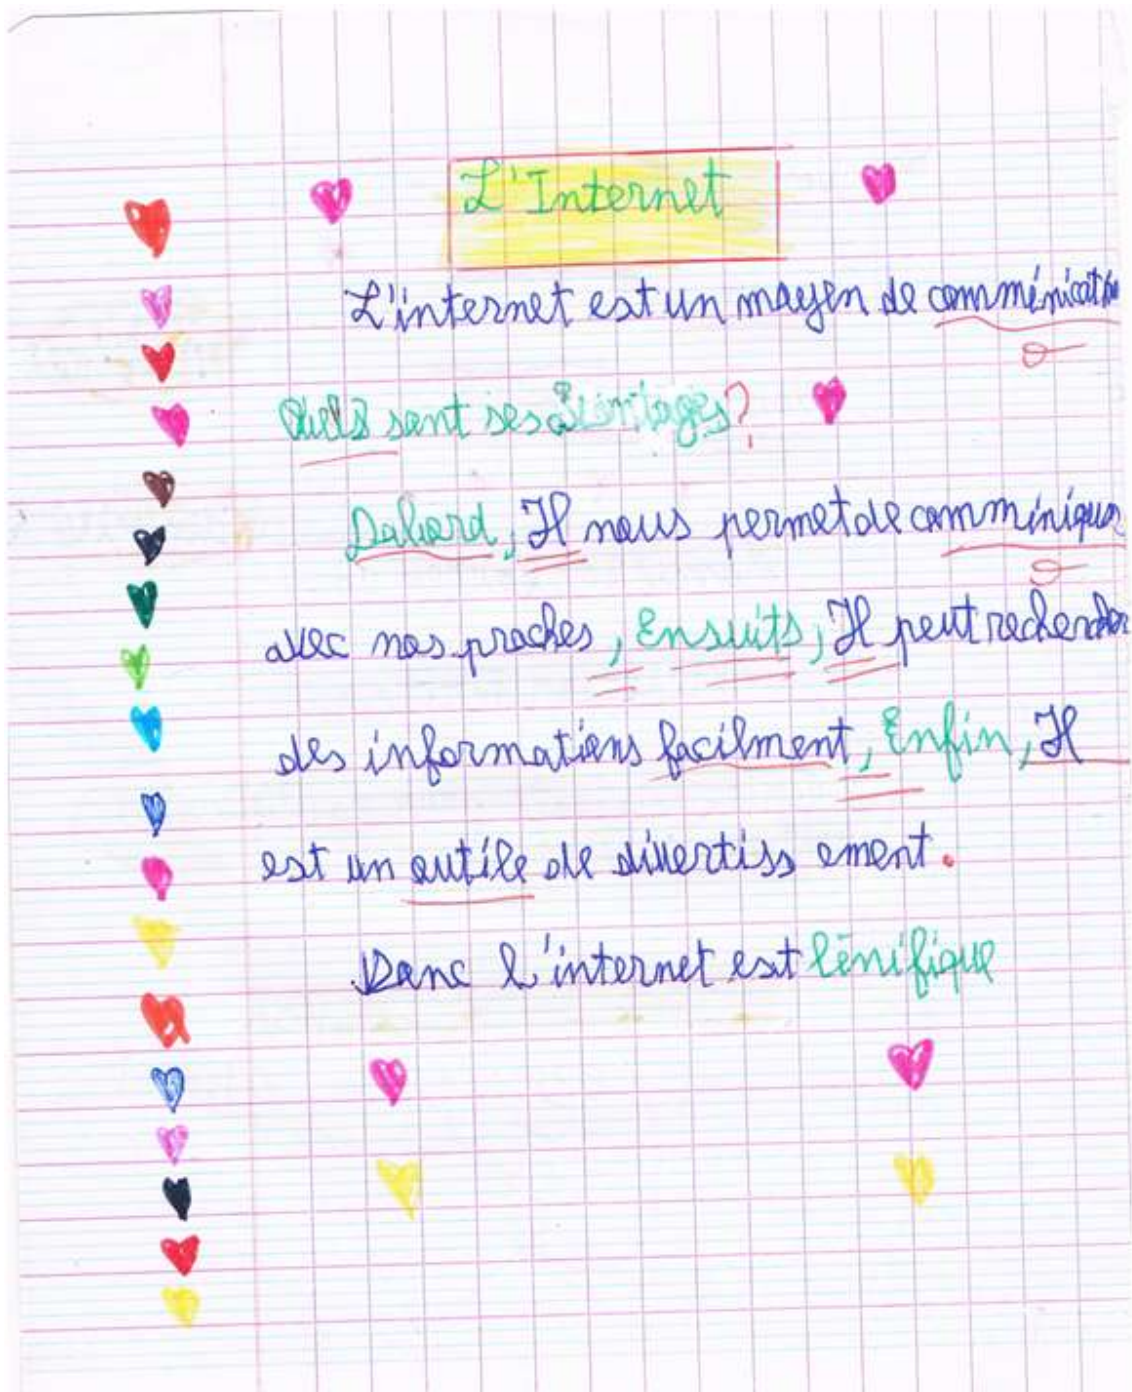 L'Internet
L'internet est un mayen de comménicatio
Quels sont ses avantages?
Dabord, Il nous permet de comminique
avec nos proches, Ensuits, Il peut rechercher
des informations facilment, Enfin, Il
est un outile de divertiss ement.
Danc l'internet est bénifique